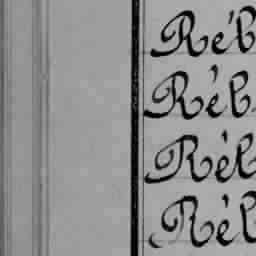 Réb
Réb
Rél
Rél